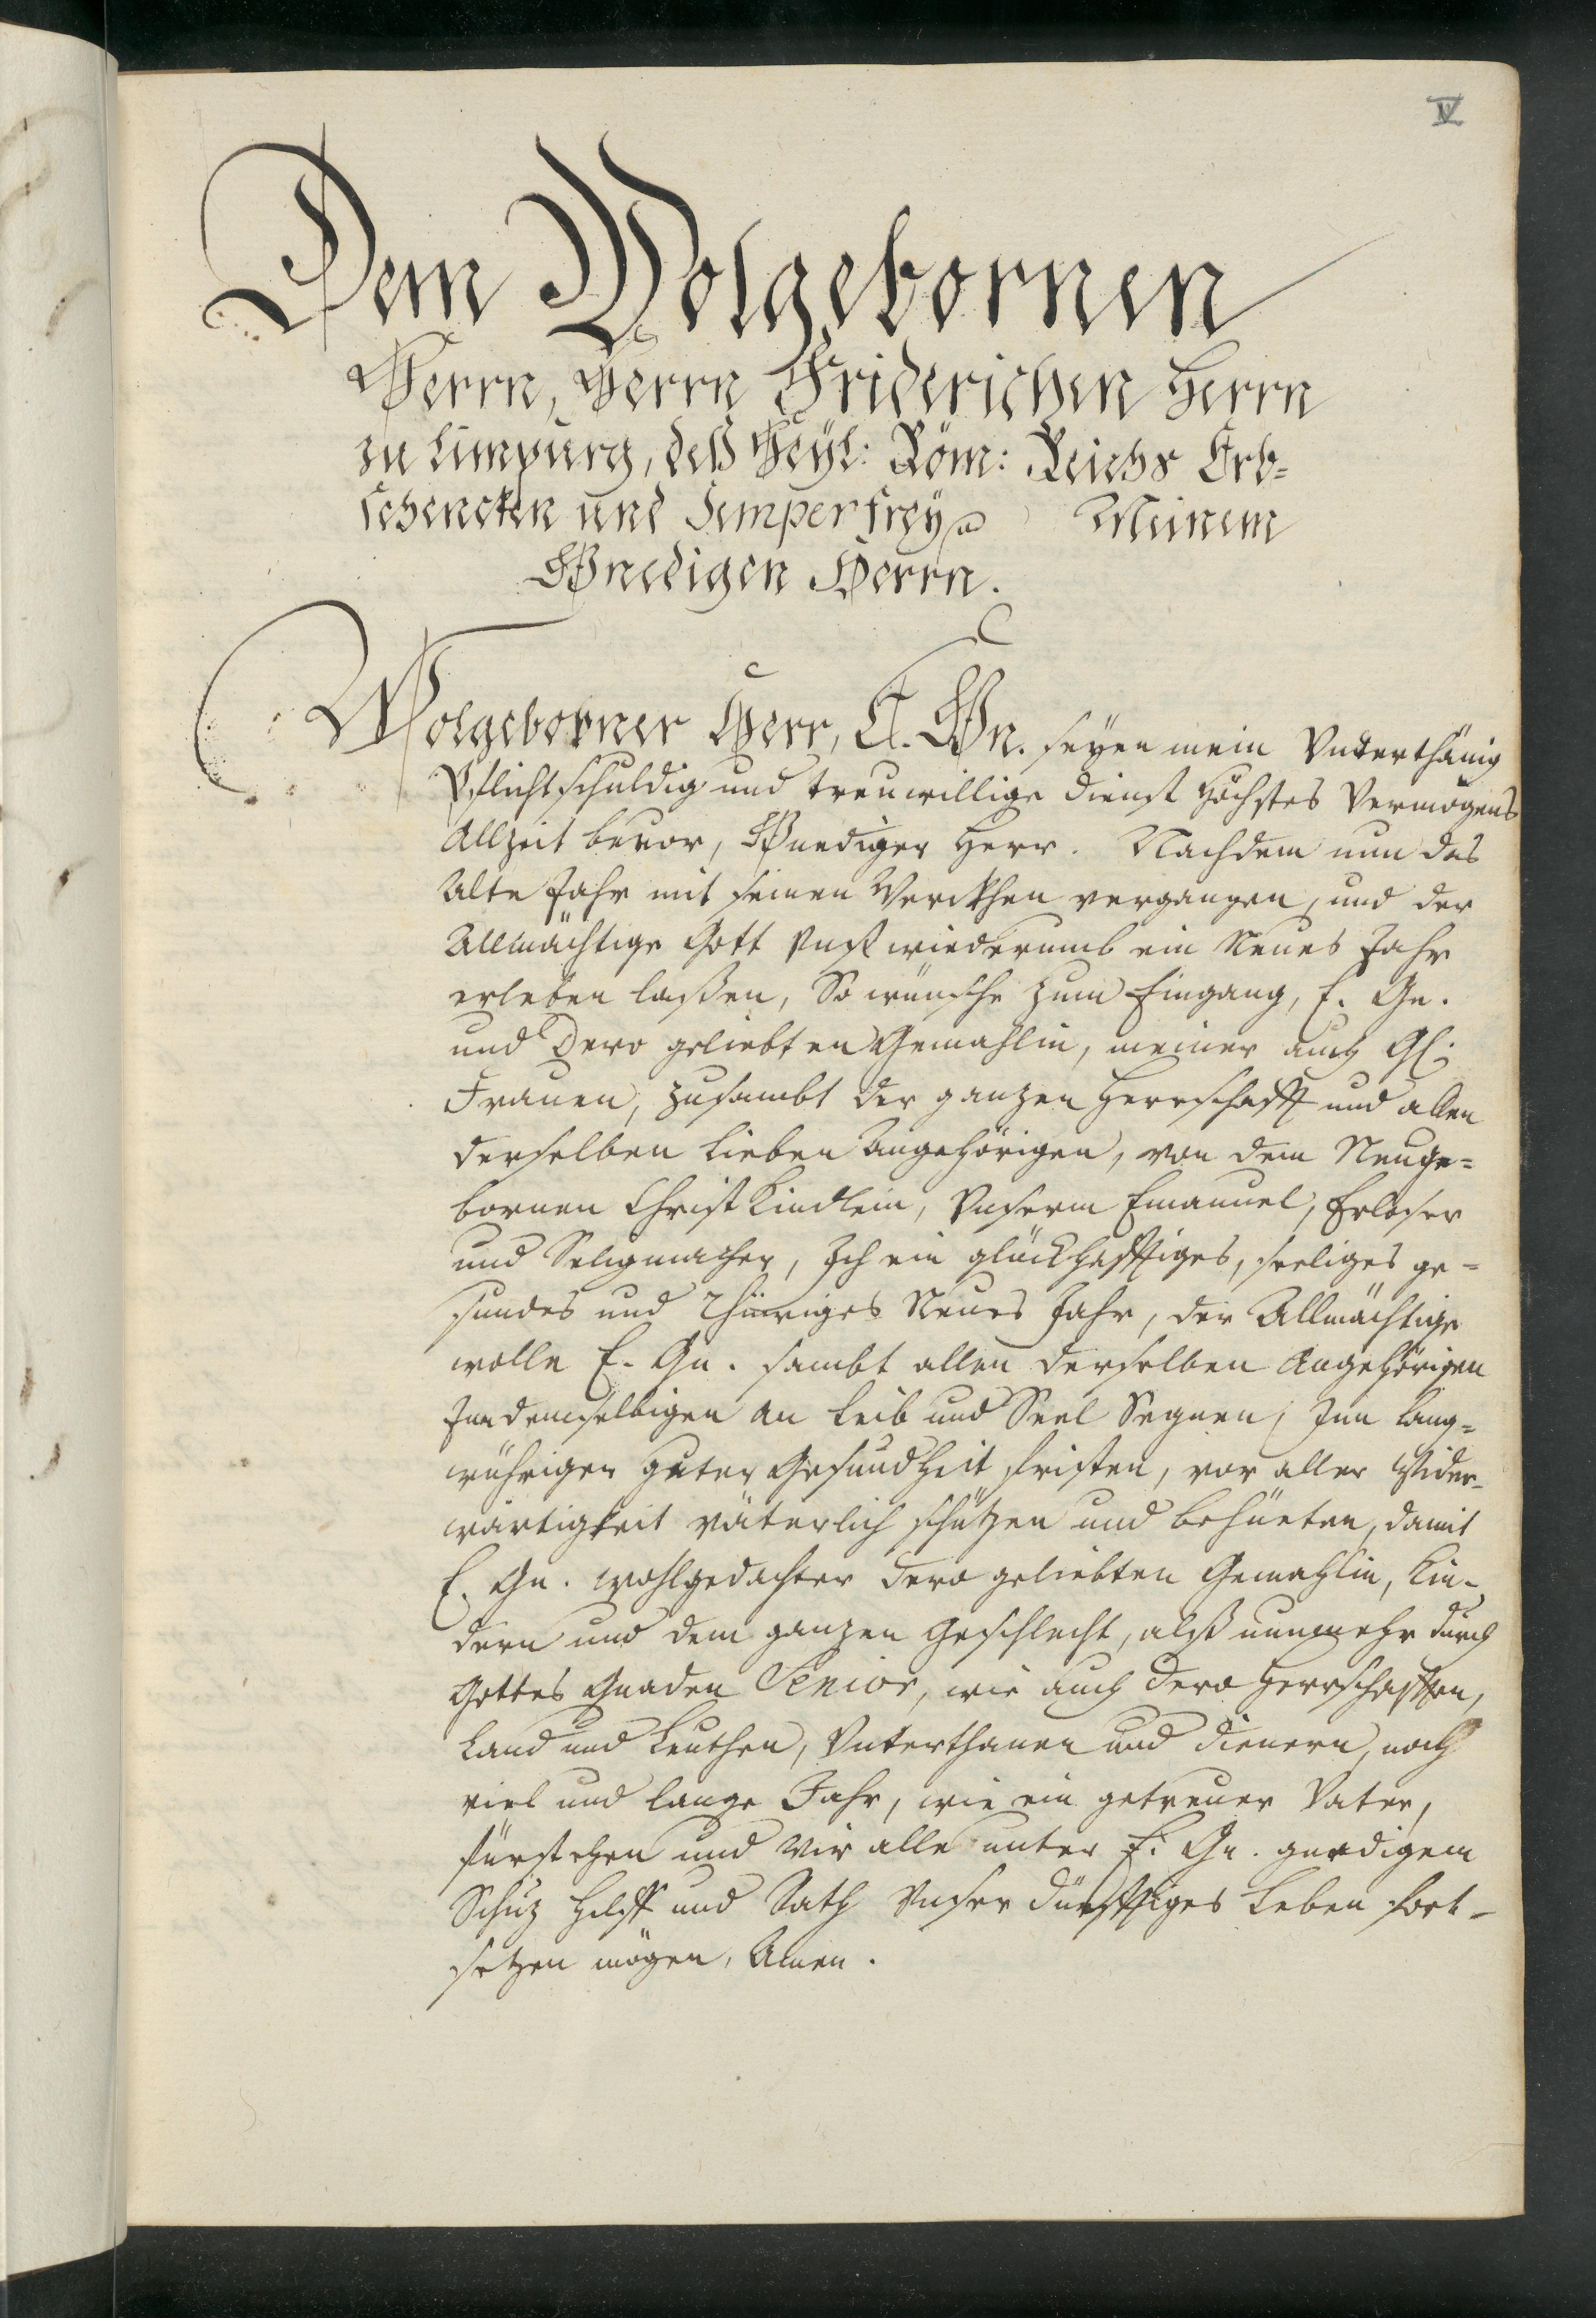 IV
Dem Wolgebornen
Herrn, Herrn Friderichen Herrn
zu Limpurg, deß Heyl: Röm: Reichs Erb-
schencken und Semperfrey Meinem
Gnedigen Herrn.
Wolgeborner Herr, E. Gn. seyen mein Vnterthänig
Pflichtschuldig und treuwillige dienst höchstes Vermögens
Allzeit beuor, Gnediger Herr. Nachdem nun das
Alte Jahr mit seinen Werckhen vergangen, und der
Allmächtige Gott Vnß wiederumb ein Neues Jahr
erleben laßen, So wünsche zum Eingang, E. Gn.
und Dero geliebten Gemahlin, meiner auch Gl:
Frauen, zusambt der ganzen Herrschafft und allen
derselben lieben Angehörigen, von dem Neuge=
bornen Christkindlein, Vnserm Emanuel, Erlöser
und Seligmacher, Ich ein glückhafftiges, seeliges ge=
sundes und Neues Jahr, der Allmächtige
wolle E. Gn. sambt allen derselben Angehörigen
In demselbigen an Leib und Seel Segnen, Inn lang=
wührigen guter Gesundheit fristen, vor aller Wider-
wärtigkeit väterlich schützen und behüeten, damit
E. Gn. wohlgedachter dero geliebten Gemahlin, Kin-
dern und dem ganzen Geschlecht, alß nunmehr durch
Gottes Gnaden Senior, wie auch dero Herrschafften,
Land und Leuthen, Vnterthanen und dienern, noch
viel und lange Jahr, wie ein getreuer Vater,
fürstehen und Wir alle unter E. Gn. gnedigem
Schuz Hilff und Rath Vnser dürfftiges Leben fort-
setzen mögen, Amen.